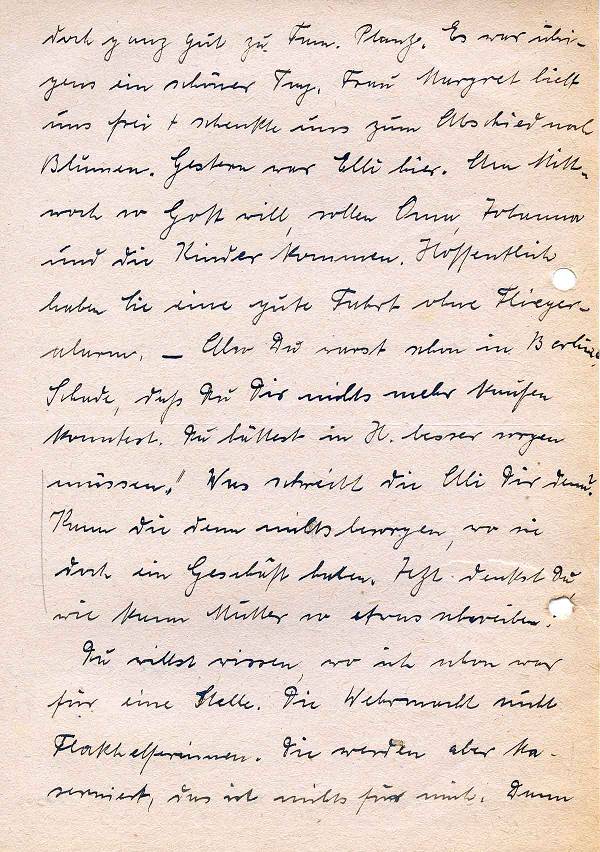 doch ganz gut zu Fam. Plantz. Es war übri-
gens ein schöner Tag. Frau Margret ließ
uns frei + schenkte uns zum Abschied noch
Blumen. Gestern war Elli hier. Am Mitt-
woch so Gott will, sollen Oma, Johanna
und die Kinder kommen. Hoffentlich
haben sie eine gute Fahrt ohne Flieger-
alarm. – Also Du warst schon in Berlin.
Schade, daß Du Dir nichts mehr kaufen
konntest. Du hättest in H. besser sorgen
müssen." Was schreibt die Elli Dir denn?
Kann die denn nichts besorgen, wo sie
doch ein Geschäft haben. Jetzt denkst Du,
wie kann Mutter so etwas schreiben.
Du willst wissen, wo ich schon war
für eine Stelle. Die Wehrmacht sucht
Flakhelferinnen. Die werden aber ka-
serniert, das ist nichts für mich. Dann